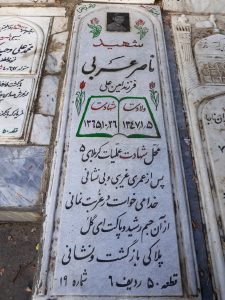 شهید
ناصر عربی
فرزند امین علی
ولادت شهادت
۱۳۴۷/۱/۵ ۱۳۶۵/۱۰/۲۶
محل شهادت عملیات کربلای ۵
پس از عمری غریبی و بی نشانی
خدا می خواست در غربت نمانی
از آن جسم رشید و پاکت ای گل
پلاکی بازگشت و نشانی
قطعه ۵۰ ردیف ۶ شماره ۱۹